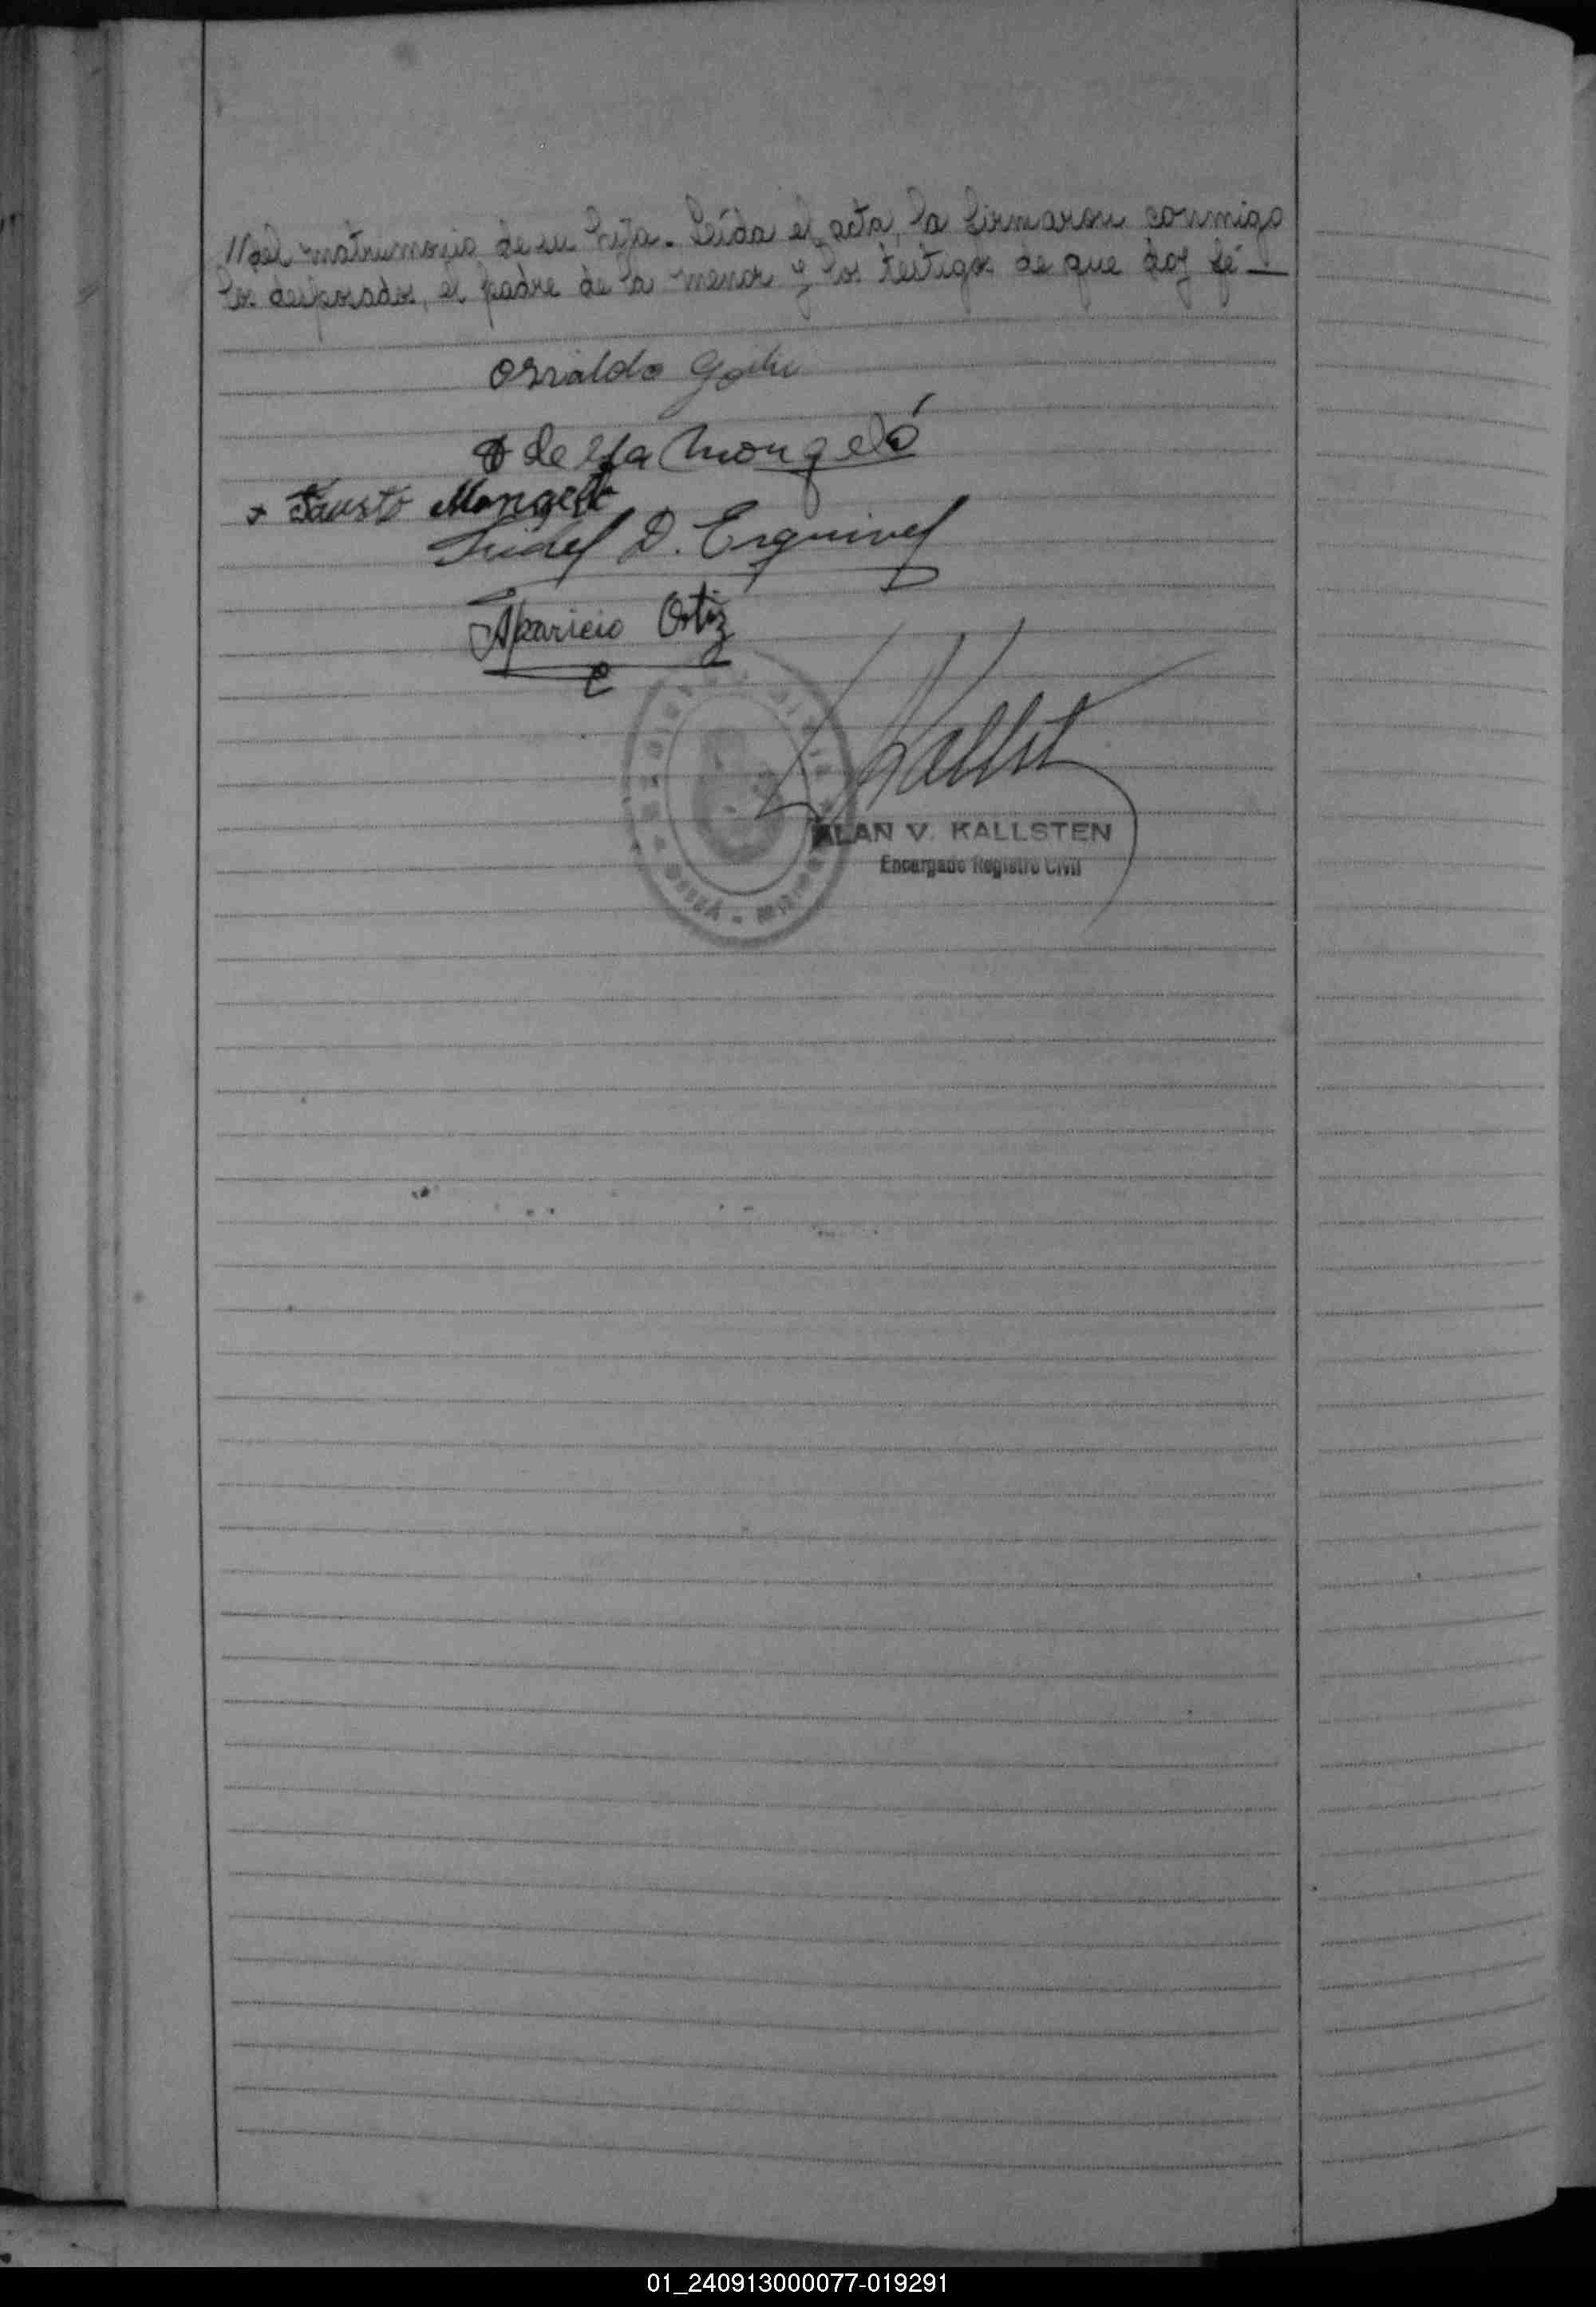 //del matrimonio de su hija. Leída el acta, la firmaron conmigo
los desposados, el padre de la menor y los testigos de que doy fé —
Osvaldo
Adelfa Mongeló
+ Fausto Mongeló
Fidel D. Esquivel
Aparicio Ortiz
Kallst
ALAN V. KALLSTEN
Encargado Registro Civil
01_240913000077-019291